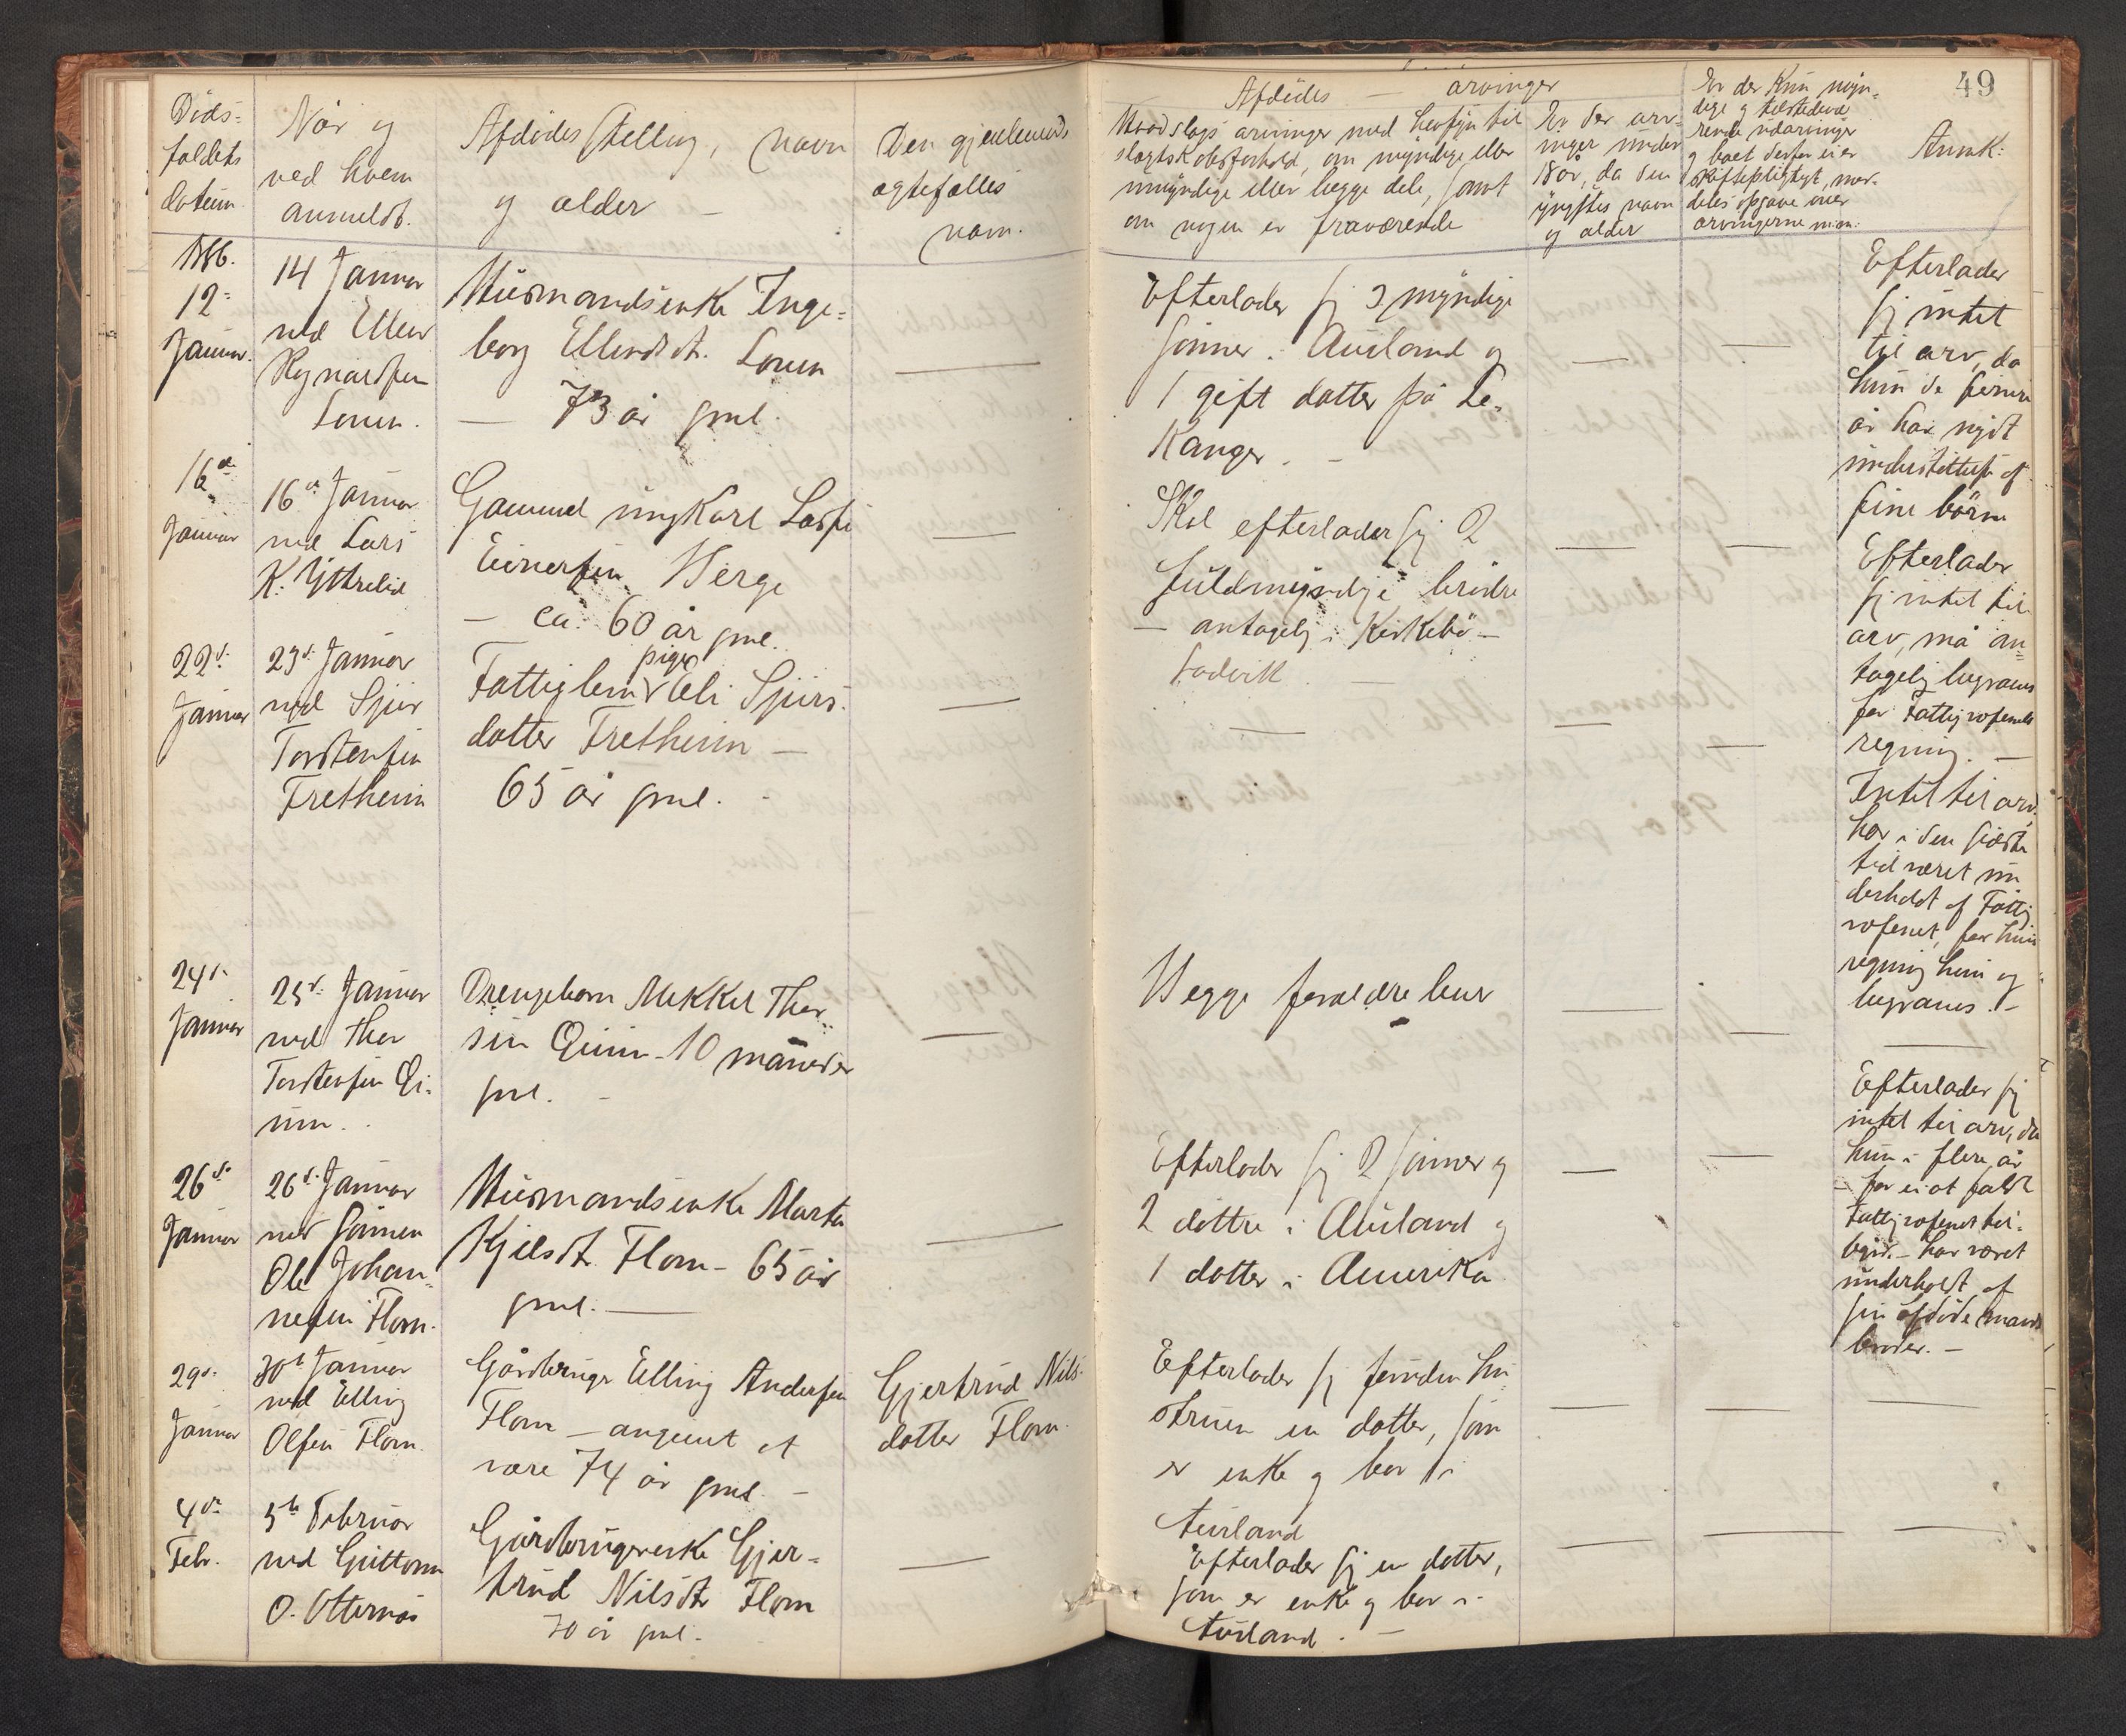 49
Döds-
faldets
datum.
Når og
ved hvem
anmeldt.
Afdödes stilling, navn
og alder –
Den gjenlevends
ægtefælles
navn.
Afdödes — arvinger
Hvadslags arvinger med hensyn til
slægtskabsforhold, om myndige eller
umyndige eller begge dele, samt
om nogen er fraværende
Er der arv-
inger under
18 år, da den
yngstes navn
og alder
Er der kun myn-
dige og tilstedevæ
rende udarvinger
og boet derfor ei er
skiftepligtigt, med-
deles opgave over
arvingerne m.m.
Anmk:
12-
Januar.
14 Januar
ved
Lonen.
Husmandsenke Inge-
borg Ellendsdt. Lonen
— 73 år gml.
Efterlader sig 2 myndige
sönner i Aurland og
1 gift datter på Le-
kanger. –
Efterlader
sig intet
til arv, da
hun de senere
år har nydt
understöttelse af
sine börn
16de
Januar
16de Januar
ved Lars
K. Ytrelid
Gammel ungkarl Lasse
Einersen Berge
– ca. 60 år gml.
Skal efterlader sig 2
fuldmyndige brödre
— antagelig i Kirkebö –
Ladvik. —
Efterlader
sig intet til
arv, må an-
tagelig begraves
for Fattigvæsenets
regning. —
22d.
Januar
23d. Januar
ved Sjur
Torstensen
Fretheim
pige
Fattiglem v Eli Sjurs-
datter Fretheim —
65 år gml. -
Intet til arv.
har i den sidste
tid været un
derholdt af Fattig
væsenet, for hvis
regning hun og
begraves. –
24d.
Januar
25d. Januar
ved Thor
Torstensen
Drengebarn Mikkel Thor-
sen – 10 måneder
gml. –
Begge forældre lever
26d.
Januar
26d. Januar
ved sönnen
Ole Johan-
nesen Flom.
Husmandsenke Marta
Kjelsdt. Flom – 65 år
gml. —
Efterlader sig 2 sönner og
2 döttre i Auland og
1 datter i Amerika
Efterlader sig
intet til arv, da
hun i flere år
– for ei at falde
Fattigvæsenet til-
byrd. – har været
underholdt af
sin afdöde mands
broder. –
29d.
Januar
30te Januar
ved Elling
Olsen Flom.
Gårdbruger Elling Andersen
Flom – angivet at
være 74 år gml. –
Gjertrud Nils-
datter Flom.
Efterlader sig foruden hu-
struen en datter, som
er enke og bor i
Aurland
4de
Febr.
5te Februar
ved Guttorm
O. Otternäs
Gårdbrugerenke Gjer-
trud Nilsdt. Flom
70 år gml. –
Efterlader sig en datter,
som er enke og bor i
Aurland. –